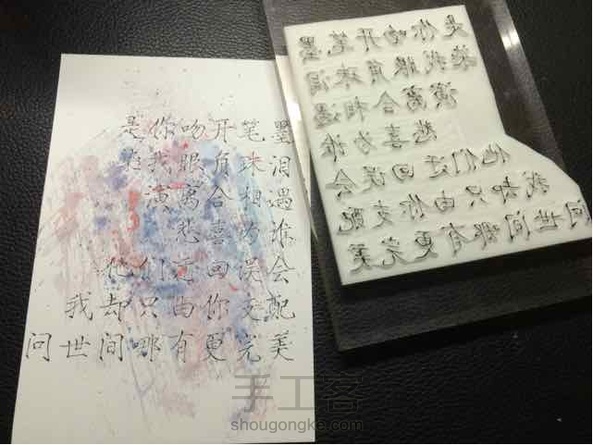 是你吻开笔墨
染我眼角珠泪
演离合相遇
悲喜为谁
他们迂回误会
我却只由你支配
问世间哪有更完美
是你吻开笔墨
染我眼角珠泪
演离合相遇
悲喜为谁
他们迂回误会
我却只由你支配
问世间哪有更完美
手工客
shougongke.com